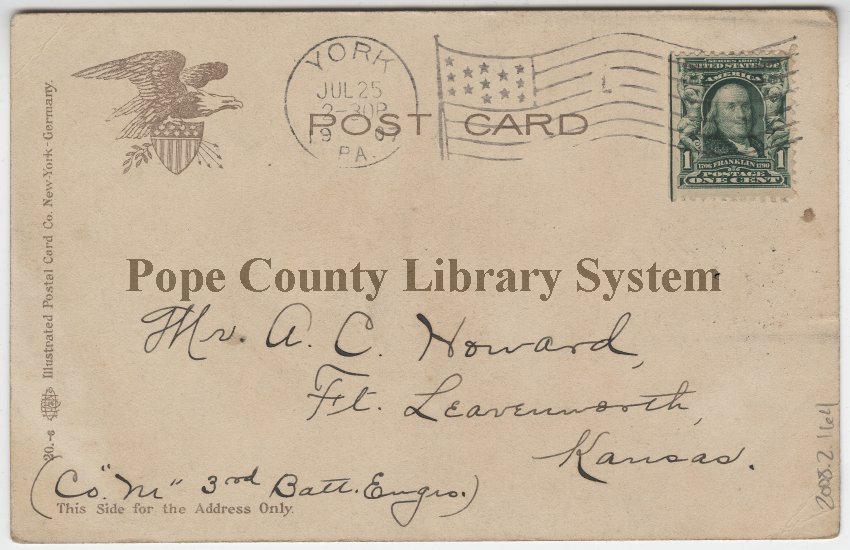 YORK
JUL 25
2-30P
19 07
PA.
POST CARD
SERIES 1902
UNITED STATES OF
AMERICA
1 1706 FRANKLIN 1790 1
POSTAGE
ONE CENT
Illustrated Postal Card Co. New-York-Germany.
Pope County Library System
Mr. A. C. Howard,
Ft. Leavenworth,
Kansas.
(Co. "M" 3rd Batt. Engrs.)
This Side for the Address Only.
2008.2.164